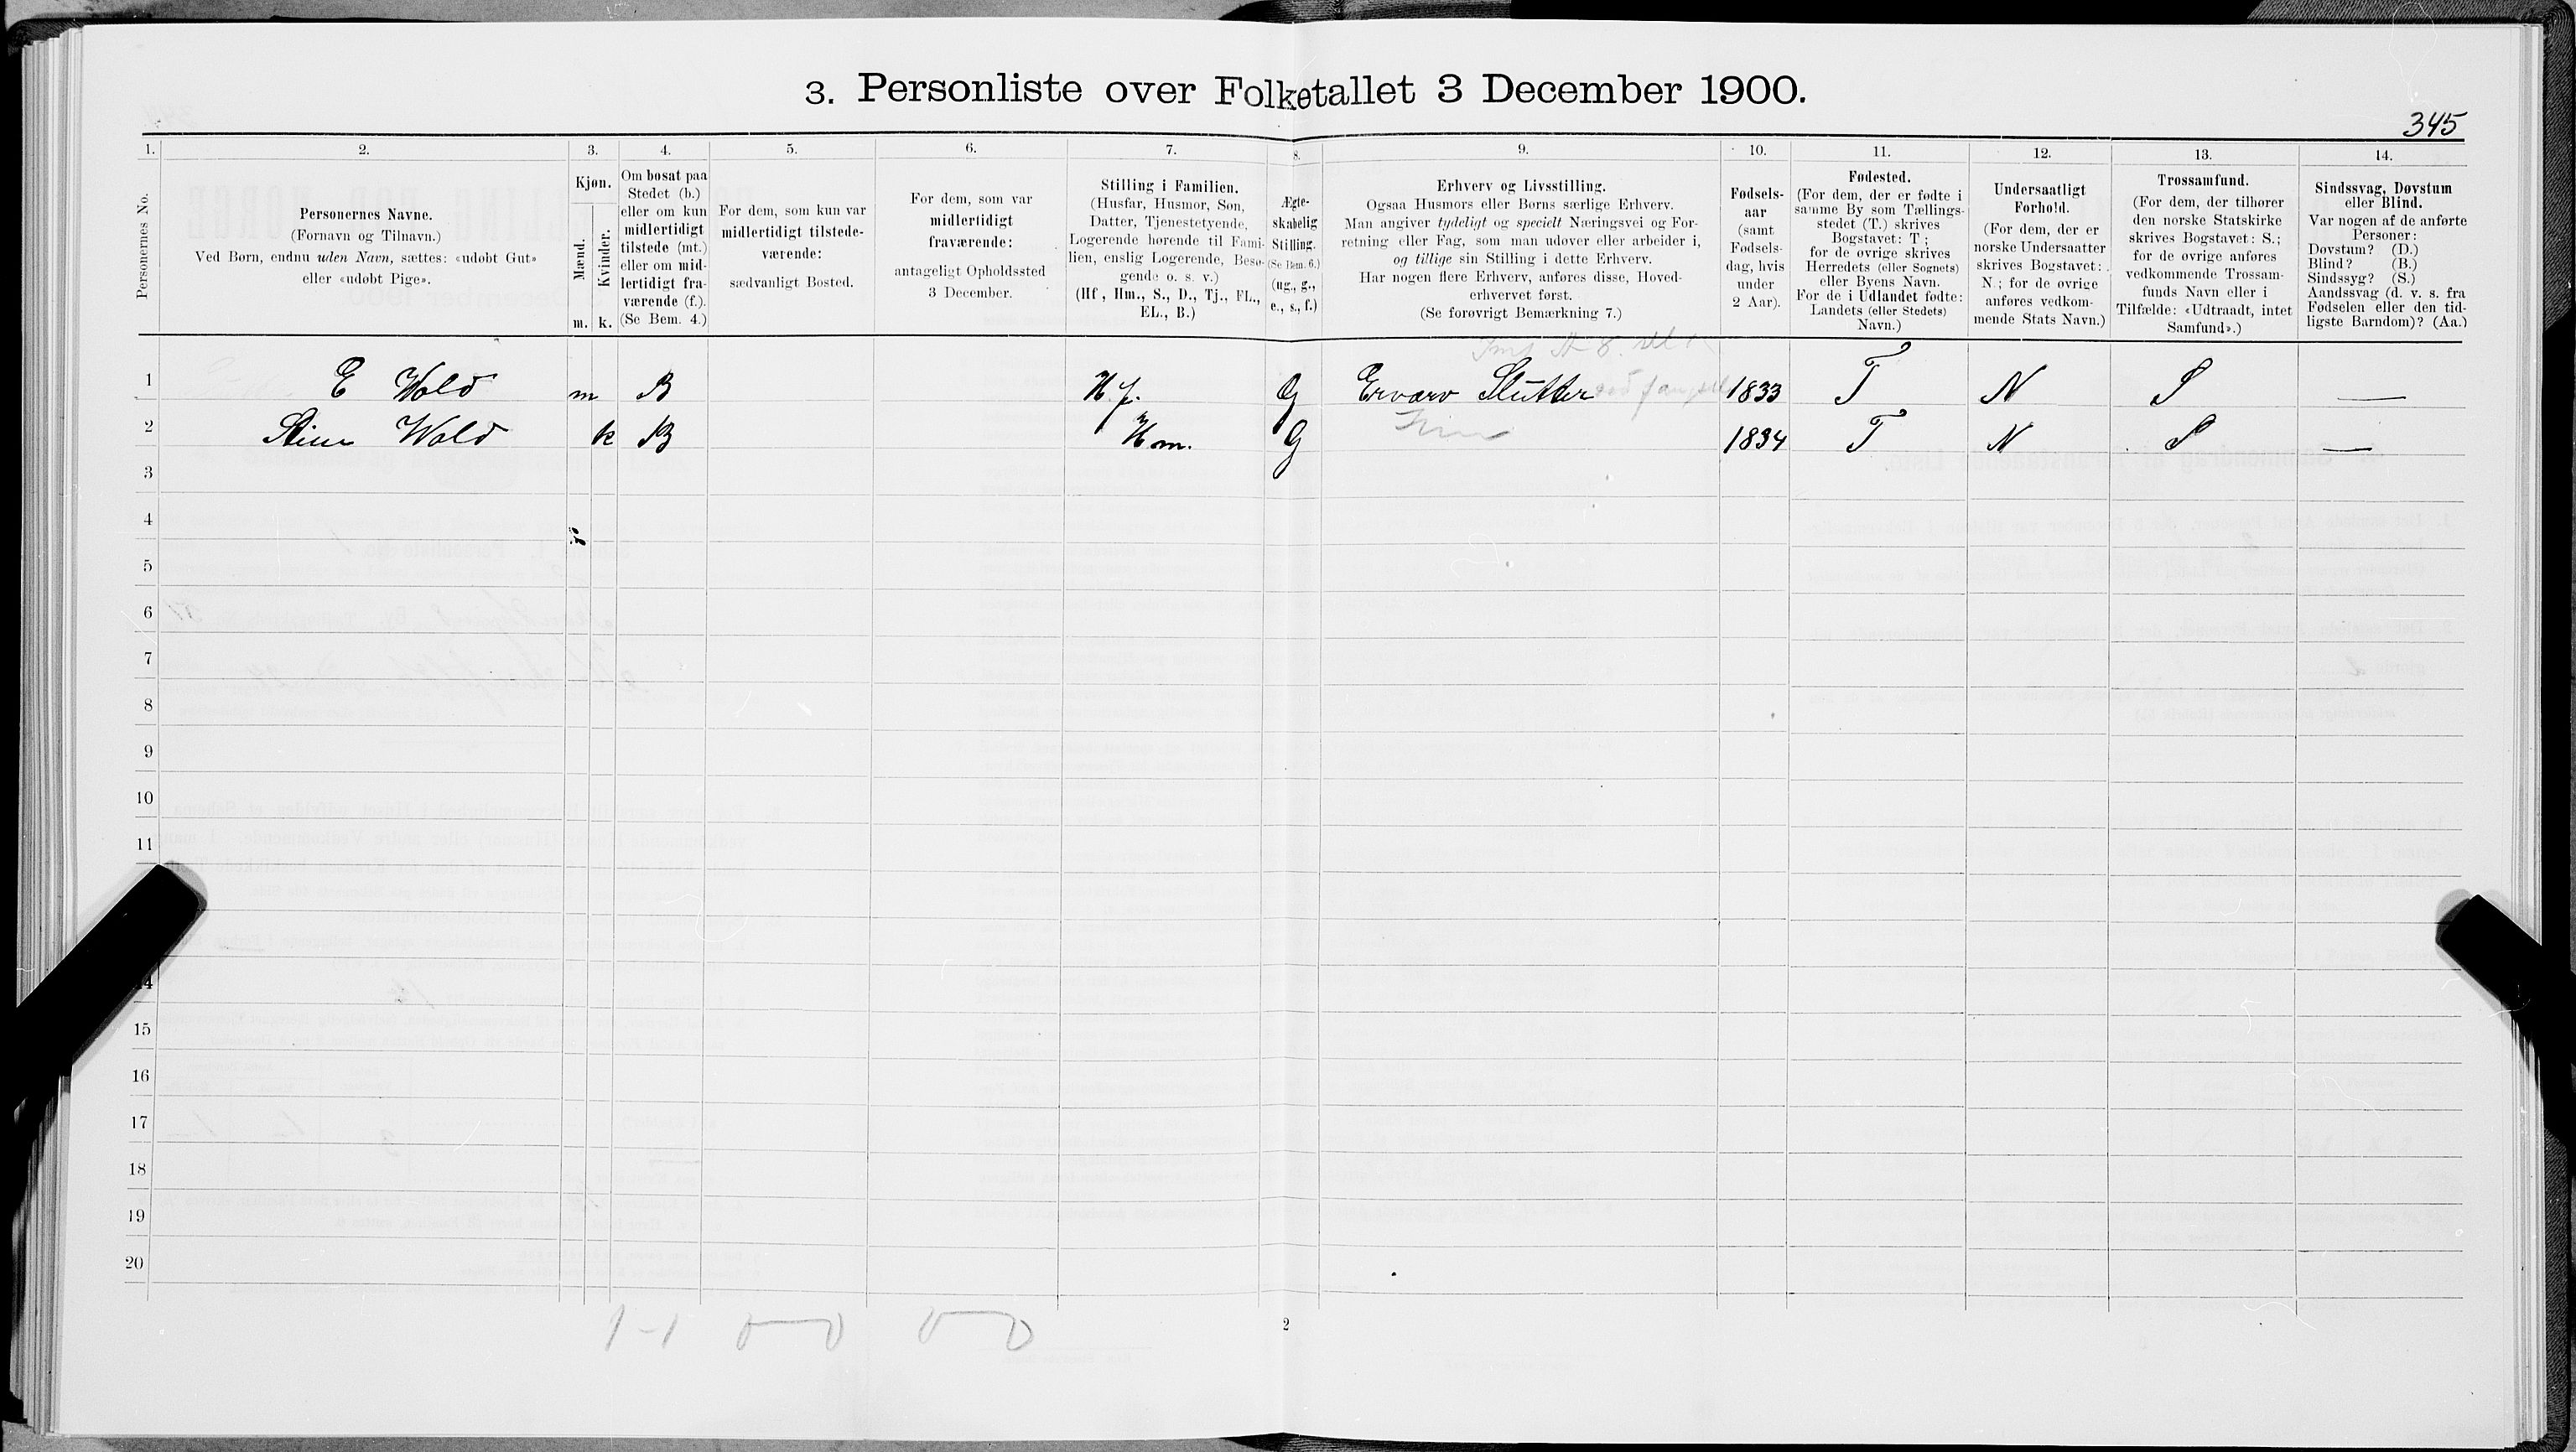 3. Personliste over Folketallet 3 December 1900.
345
1. 2. 3. 4. 5. 6. 7. 8. 9. 10. 11. 12. 13. 14.
Personernes No.
Personernes Navne.
(Fornavn og Tilnavn.)
Ved Børn, endnu uden Navn, sættes: «udøbt Gut»
eller «udøbt Pige».
Kjøn.
Mænd.
Kvinder.
m. k.
Om bosat paa
Stedet (b.)
eller om kun
midlertidigt
tilstede (mt.)
eller om mid-
lertidigt fra-
værende (f.).
(Se Bem. 4.)
For dem, som kun var
midlertidigt tilstede-
værende:
sædvanligt Bosted.
For dem, som var
midlertidigt
fraværende:
antageligt Opholdssted
3 December.
Stilling i Familien.
(Husfar, Husmor, Søn,
Datter, Tjenestetyende,
Logerende hørende til Fami-
lien, enslig Logerende, Besø-
gende o. s. v.)
(Hf, Hm., S., D., Tj., FL.,
EL., B.)
Ægte-
skabelig
Stilling.
(Se Bem. 6.)
(ug., g.,
e., s., f.)
Erhverv og Livsstilling.
Ogsaa Husmors eller Børns særlige Erhverv.
Man angiver tydeligt og specielt Næringsvei og For-
retning eller Fag, som man udøver eller arbeider i,
og tillige sin Stilling i dette Erhverv.
Har nogen flere Erhverv, anføres disse, Hoved-
erhvervet først.
(Se forøvrigt Bemærkning 7.)
Fødsels-
aar
(samt
Fødsels-
dag, hvis
under
2 Aar).
Fødested.
(For dem, der er fødte i
samme By som Tællings-
stedet (T.) skrives
Bogstavet: T;
for de øvrige skrives
Herredets (eller Sognets)
eller Byens Navn.
For de i Udlandet fødte:
Landets (eller Stedets)
Navn.)
Undersaatligt
Forhold.
(For dem, der er
norske Undersaatter
skrives Bogstavet:
N.; for de øvrige
anføres vedkom-
mende Stats Navn.)
Trossamfund.
(For dem, der tilhører
den norske Statskirke
skrives Bogstavet: S.;
for de øvrige anføres
vedkommende Trossam-
funds Navn eller i
Tilfælde: «Udtraadt, intet
Samfund».)
Sindssvag, Døvstum
eller Blind.
Var nogen af de anførte
Personer:
Døvstum? (D.)
Blind? (B.)
Sindssyg? (S.)
Aandssvag (d. v. s. fra
Fødselen eller den tid-
ligste Barndom)? (Aa.)
1 E Wold m B H.f. G Erværv Slutter 1833 T N S —
2 Stine Wold k B Hm. G 1834 T N S —
3
4
5
6
7
8
9
10
11
14
15
16
17
18
19
20
1-1 0-0 0-0
2